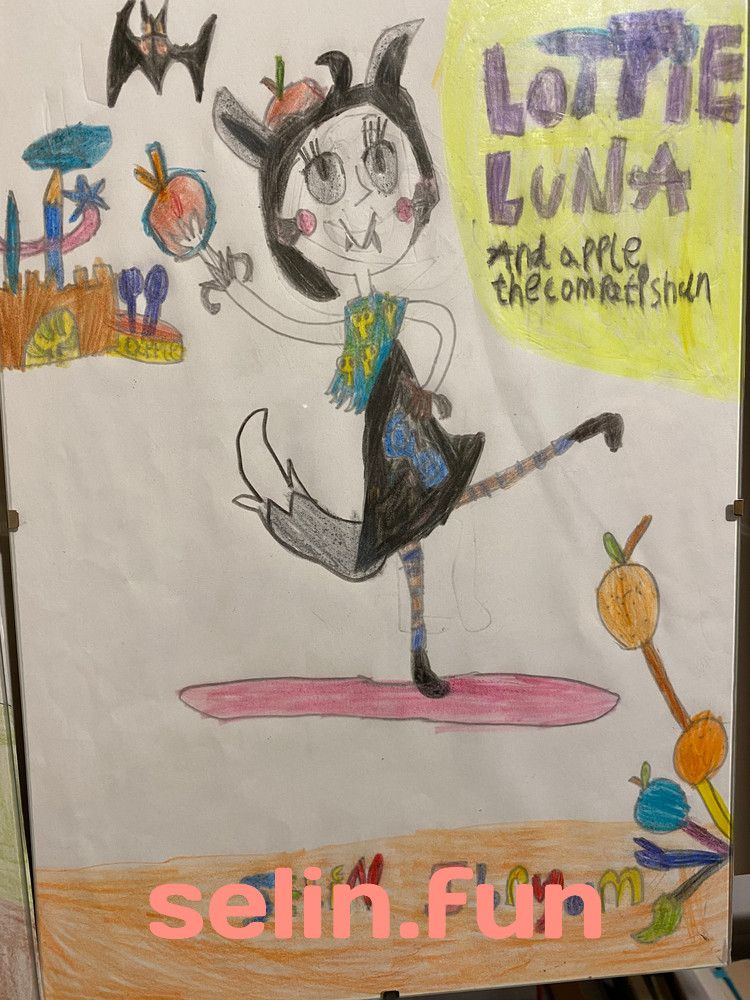 LOTTIE
LUNA
And apple
the compatishun
selin.fun